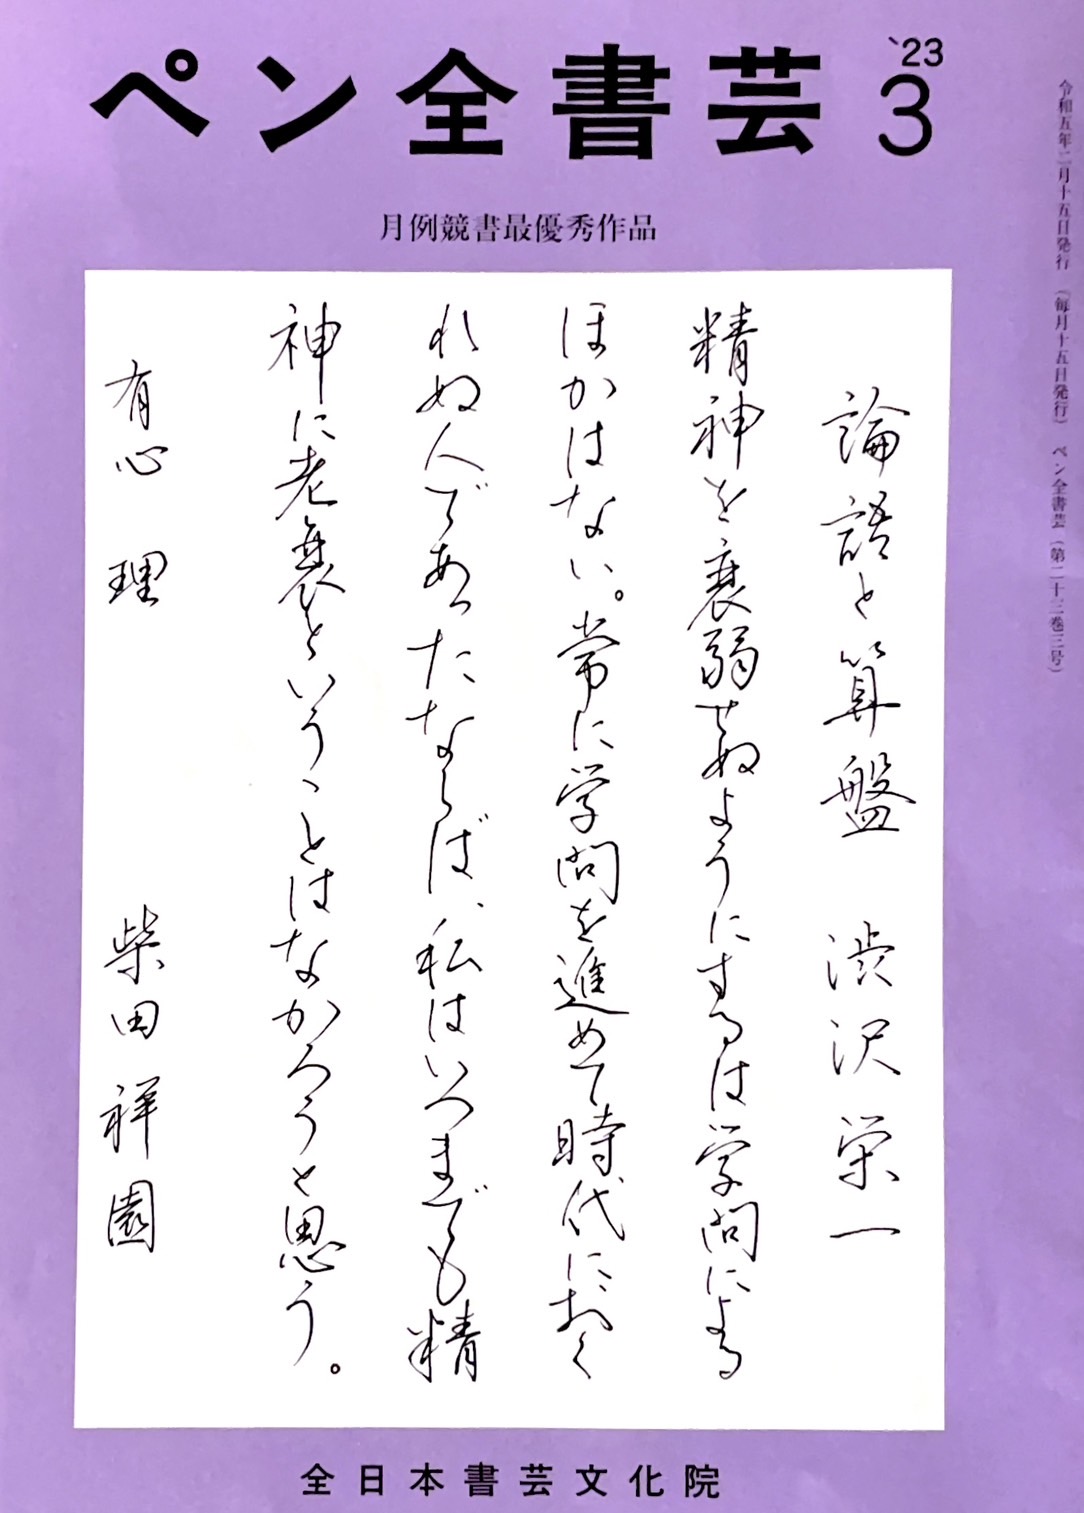 ペン全書芸
`23
3
月例競書最優秀作品
論語と算盤 渋沢栄一
精神を衰弱せぬようにするは学問による
ほかはない。常に学問を進めて時代におく
れぬ人であったならば、私はいつまでも精
神に老衰ということはなかろうと思う。
有心 理 柴田祥園
全日本書芸文化院
令和五年二月十五日発行 (毎月十五日発行) ペン全書芸 (第二十三巻三号)